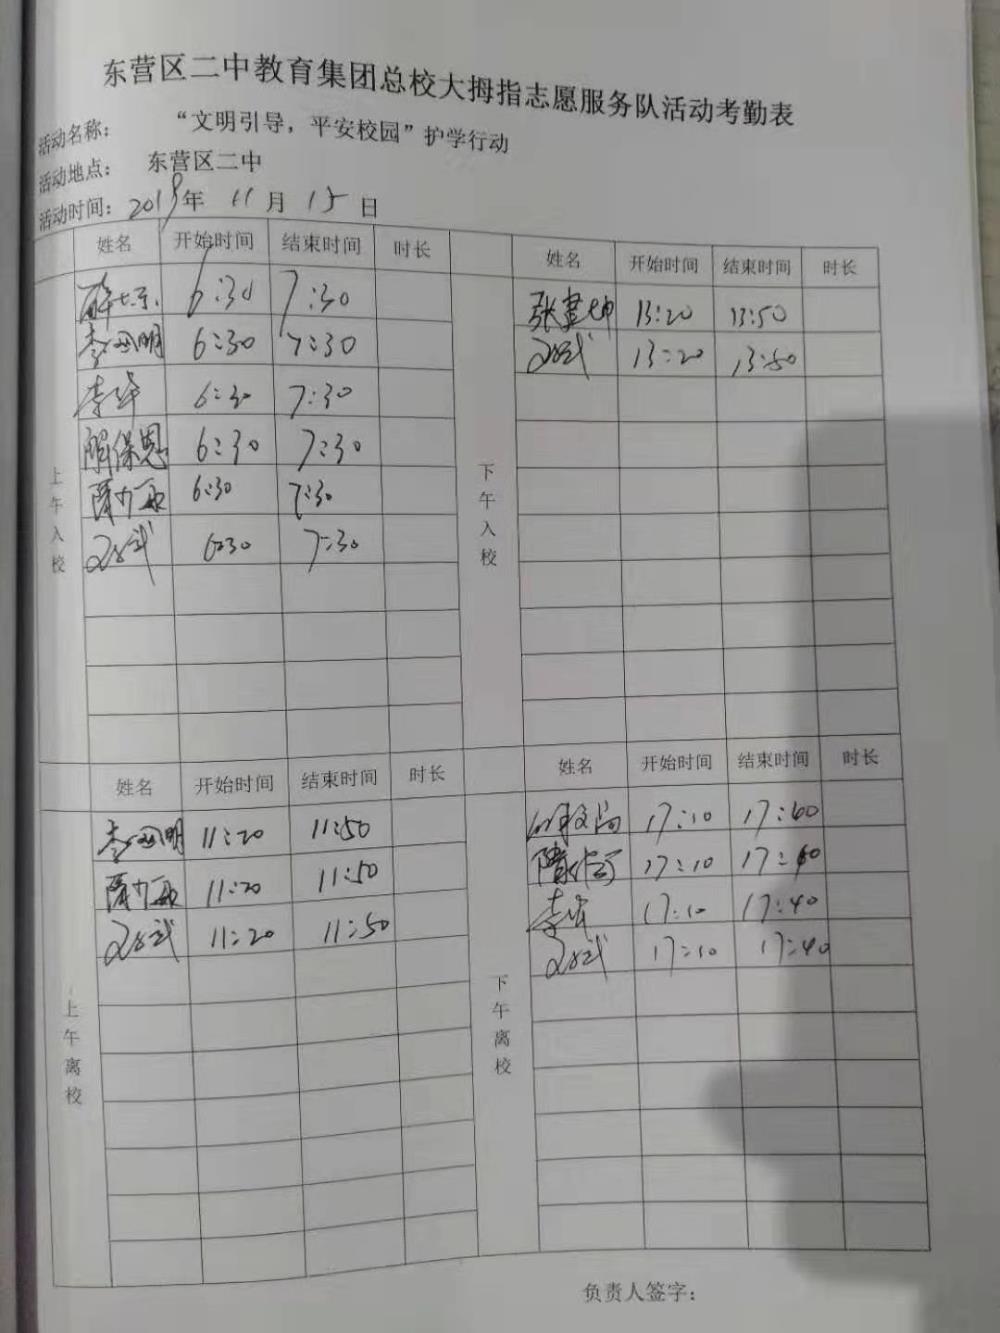 东营区二中教育集团总校大拇指志愿服务队活动考勤表
活动名称： “文明引导，平安校园”护学行动
活动地点： 东营区二中
活动时间：2019年 11月 15日
姓名 开始时间 结束时间 时长
上午入校
6:30 7:30
6:30 7:30
李华 6:30 7:30
解保恩 6:30 7:30
6:30 7:30
6:30 7:30
姓名 开始时间 结束时间 时长
下午入校
张建坤 13:20 13:50
13:20 13:50
姓名 开始时间 结束时间 时长
上午离校
11:20 11:50
11:20 11:50
11:20 11:50
姓名 开始时间 结束时间 时长
下午离校
17:10 17:40
17:10 17:40
李华 17:10 17:40
17:10 17:40
负责人签字：